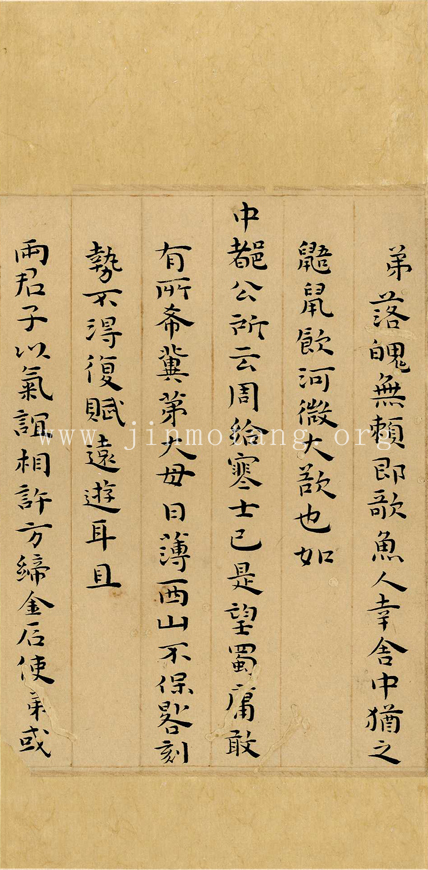 弟落魄無賴即歌魚人幸舍中猶之
鼯鼠飲河微大歃也如
中都公所云周給寒士已是望蜀庸敢
有所希冀第大母日薄西山不保晷刻
勢不得復賦遠遊耳且
兩君子以氣誼相許方締金石使弟或
www.jinmotang.org